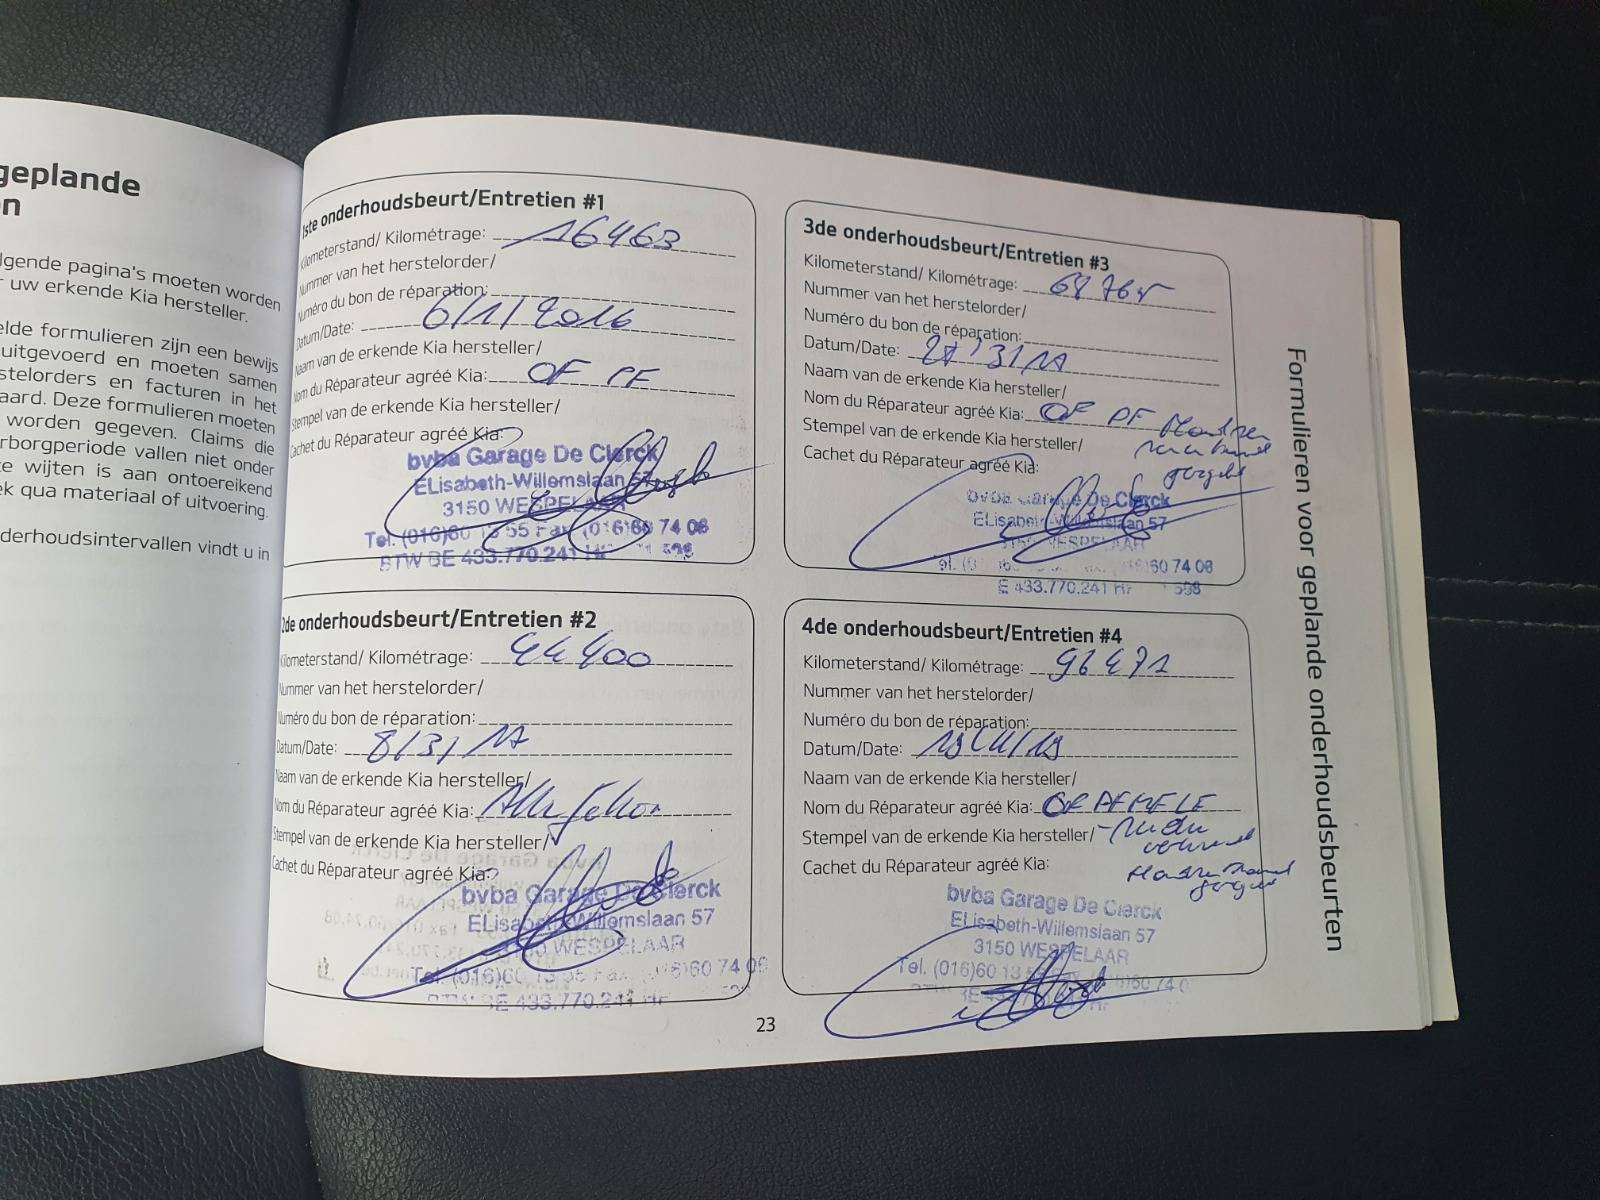 geplande
n
lgende pagina's moeten worden
r uw erkende Kia hersteller.
elde formulieren zijn een bewijs
uitgevoerd en moeten samen
stelorders en facturen in het
aard. Deze formulieren moeten
worden gegeven. Claims die
rborgperiode vallen niet onder
te wijten is aan ontoereikend
ek qua materiaal of uitvoering.
derhoudsintervallen vindt u in
1ste onderhoudsbeurt/Entretien #1
Kilometerstand/ Kilométrage: 16463
Nummer van het herstelorder/
Numéro du bon de réparation:
Datum/Date: 6/1/2016
Naam van de erkende Kia hersteller/
Nom du Réparateur agréé Kia: OF PF
Stempel van de erkende Kia hersteller/
Cachet du Réparateur agréé Kia:
bvba Garage De Clerck
ELisabeth-Willemslaan 57
3150 WESPELAAR
Tel. (016)60 13 55 Fax (016)60 74 06
BTW BE 433.770.241 Hr 598
2de onderhoudsbeurt/Entretien #2
Kilometerstand/ Kilométrage: 44400
Nummer van het herstelorder/
Numéro du bon de réparation:
Datum/Date: 8/3/17
Naam van de erkende Kia hersteller/
Nom du Réparateur agréé Kia:
Stempel van de erkende Kia hersteller/
Cachet du Réparateur agréé Kia:
bvba Garage De Clerck
ELisabeth-Willemslaan 57
3150 WESPELAAR
Tel. (016)60 13 55 Fax (016)60 74 06
BTW BE 433.770.241 Hr 598
3de onderhoudsbeurt/Entretien #3
Kilometerstand/ Kilométrage:
Nummer van het herstelorder/
Numéro du bon de réparation:
Datum/Date:
Naam van de erkende Kia hersteller/
Nom du Réparateur agréé Kia: OF PF
Stempel van de erkende Kia hersteller/
Cachet du Réparateur agréé Kia:
bvba Garage De Clerck
ELisabeth-Willemslaan 57
3150 WESPELAAR
60 74 06
E 433.770.241 Hr 598
4de onderhoudsbeurt/Entretien #4
Kilometerstand/ Kilométrage: 96471
Nummer van het herstelorder/
Numéro du bon de réparation:
Datum/Date:
Naam van de erkende Kia hersteller/
Nom du Réparateur agréé Kia:
Stempel van de erkende Kia hersteller/
Cachet du Réparateur agréé Kia:
bvba Garage De Clerck
ELisabeth-Willemslaan 57
3150 WESPELAAR
Tel. (016)60 13 55
Formulieren voor geplande onderhoudsbeurten
23